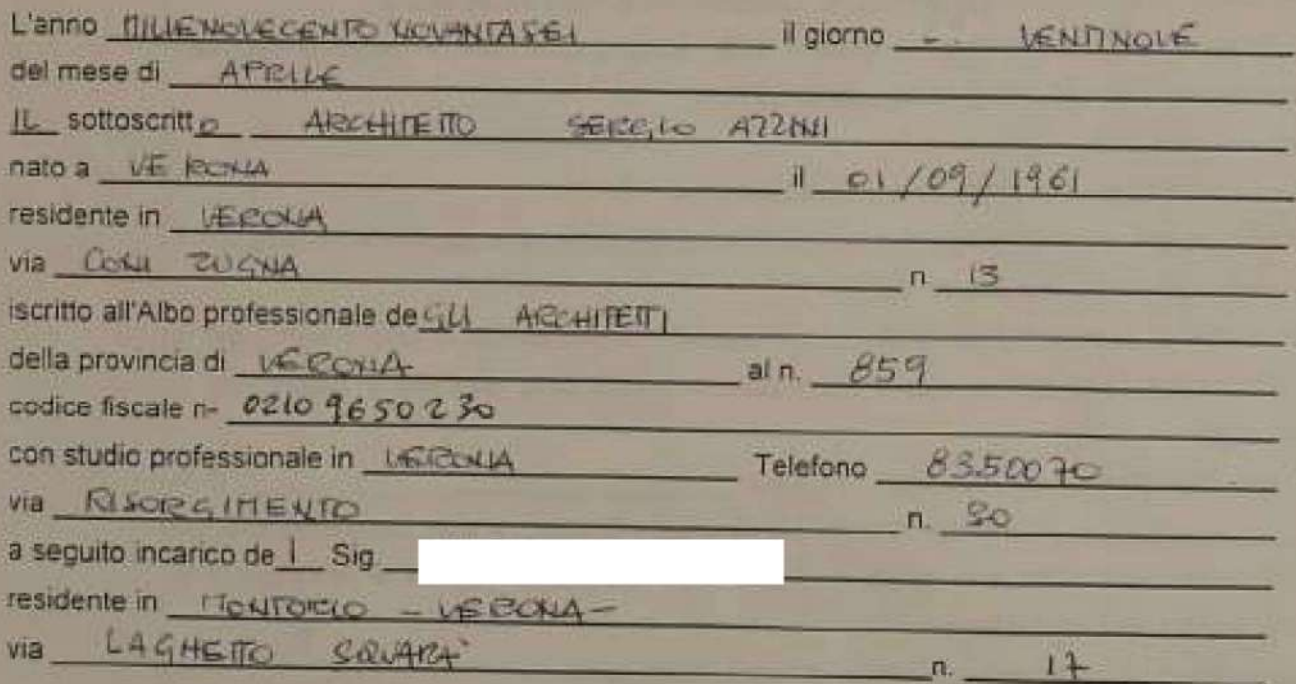 L'anno MILLENOVECENTO NOVANTASEI il giorno VENTINOVE
del mese di APRILE
IL sottoscritto ARCHITETTO SERGIO AZZINI
nato a VERONA il 01/09/1961
residente in VERONA
via CONI ZUGNA n. 13
iscritto all'Albo professionale deGLI ARCHITETTI
della provincia di VERONA al n. 859
codice fiscale n- 02109650230
con studio professionale in VERONA Telefono 8350070
via RISORGIMENTO n.
a seguito incarico de l Sig
residente in MONTORIO - VERONA -
via LAGHETTO SQUARA' n. 17